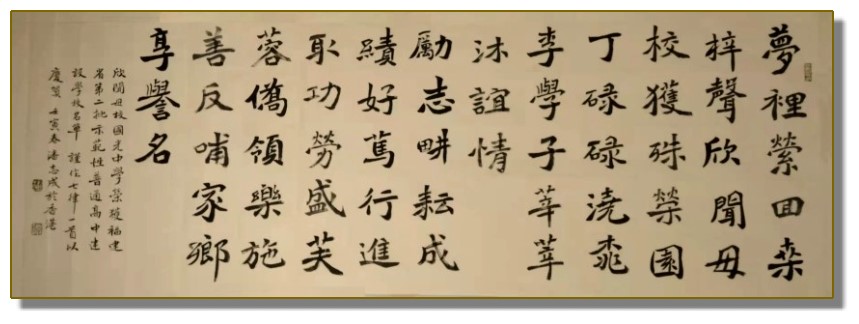 夢裡縈回桒
梓聲欣聞母
校獲殊榮園
丁碌碌澆桃
李學子莘莘
沐誼情
勵志畊耘成
績好篤行進
取功勞盛芙
蓉僑領樂施
善反哺家鄉
享譽名
欣聞母校國光中學榮獲福建
省第二批示範性普通高中建
設學校名單 謹作七律一首以
慶賀 壬寅春 潘志成於香港